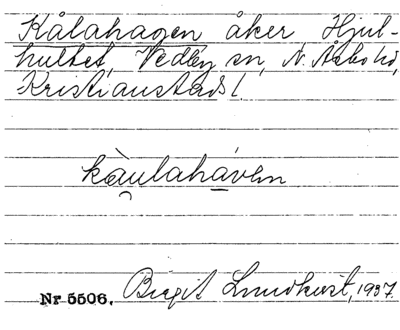 Kålahagen åker Hjul-
hultet, Vedby sn, N. Åsbo hd,
Kristianstads l.
kàu̯lahávən
Nr 5506. Birgit Lundkvist, 1937.